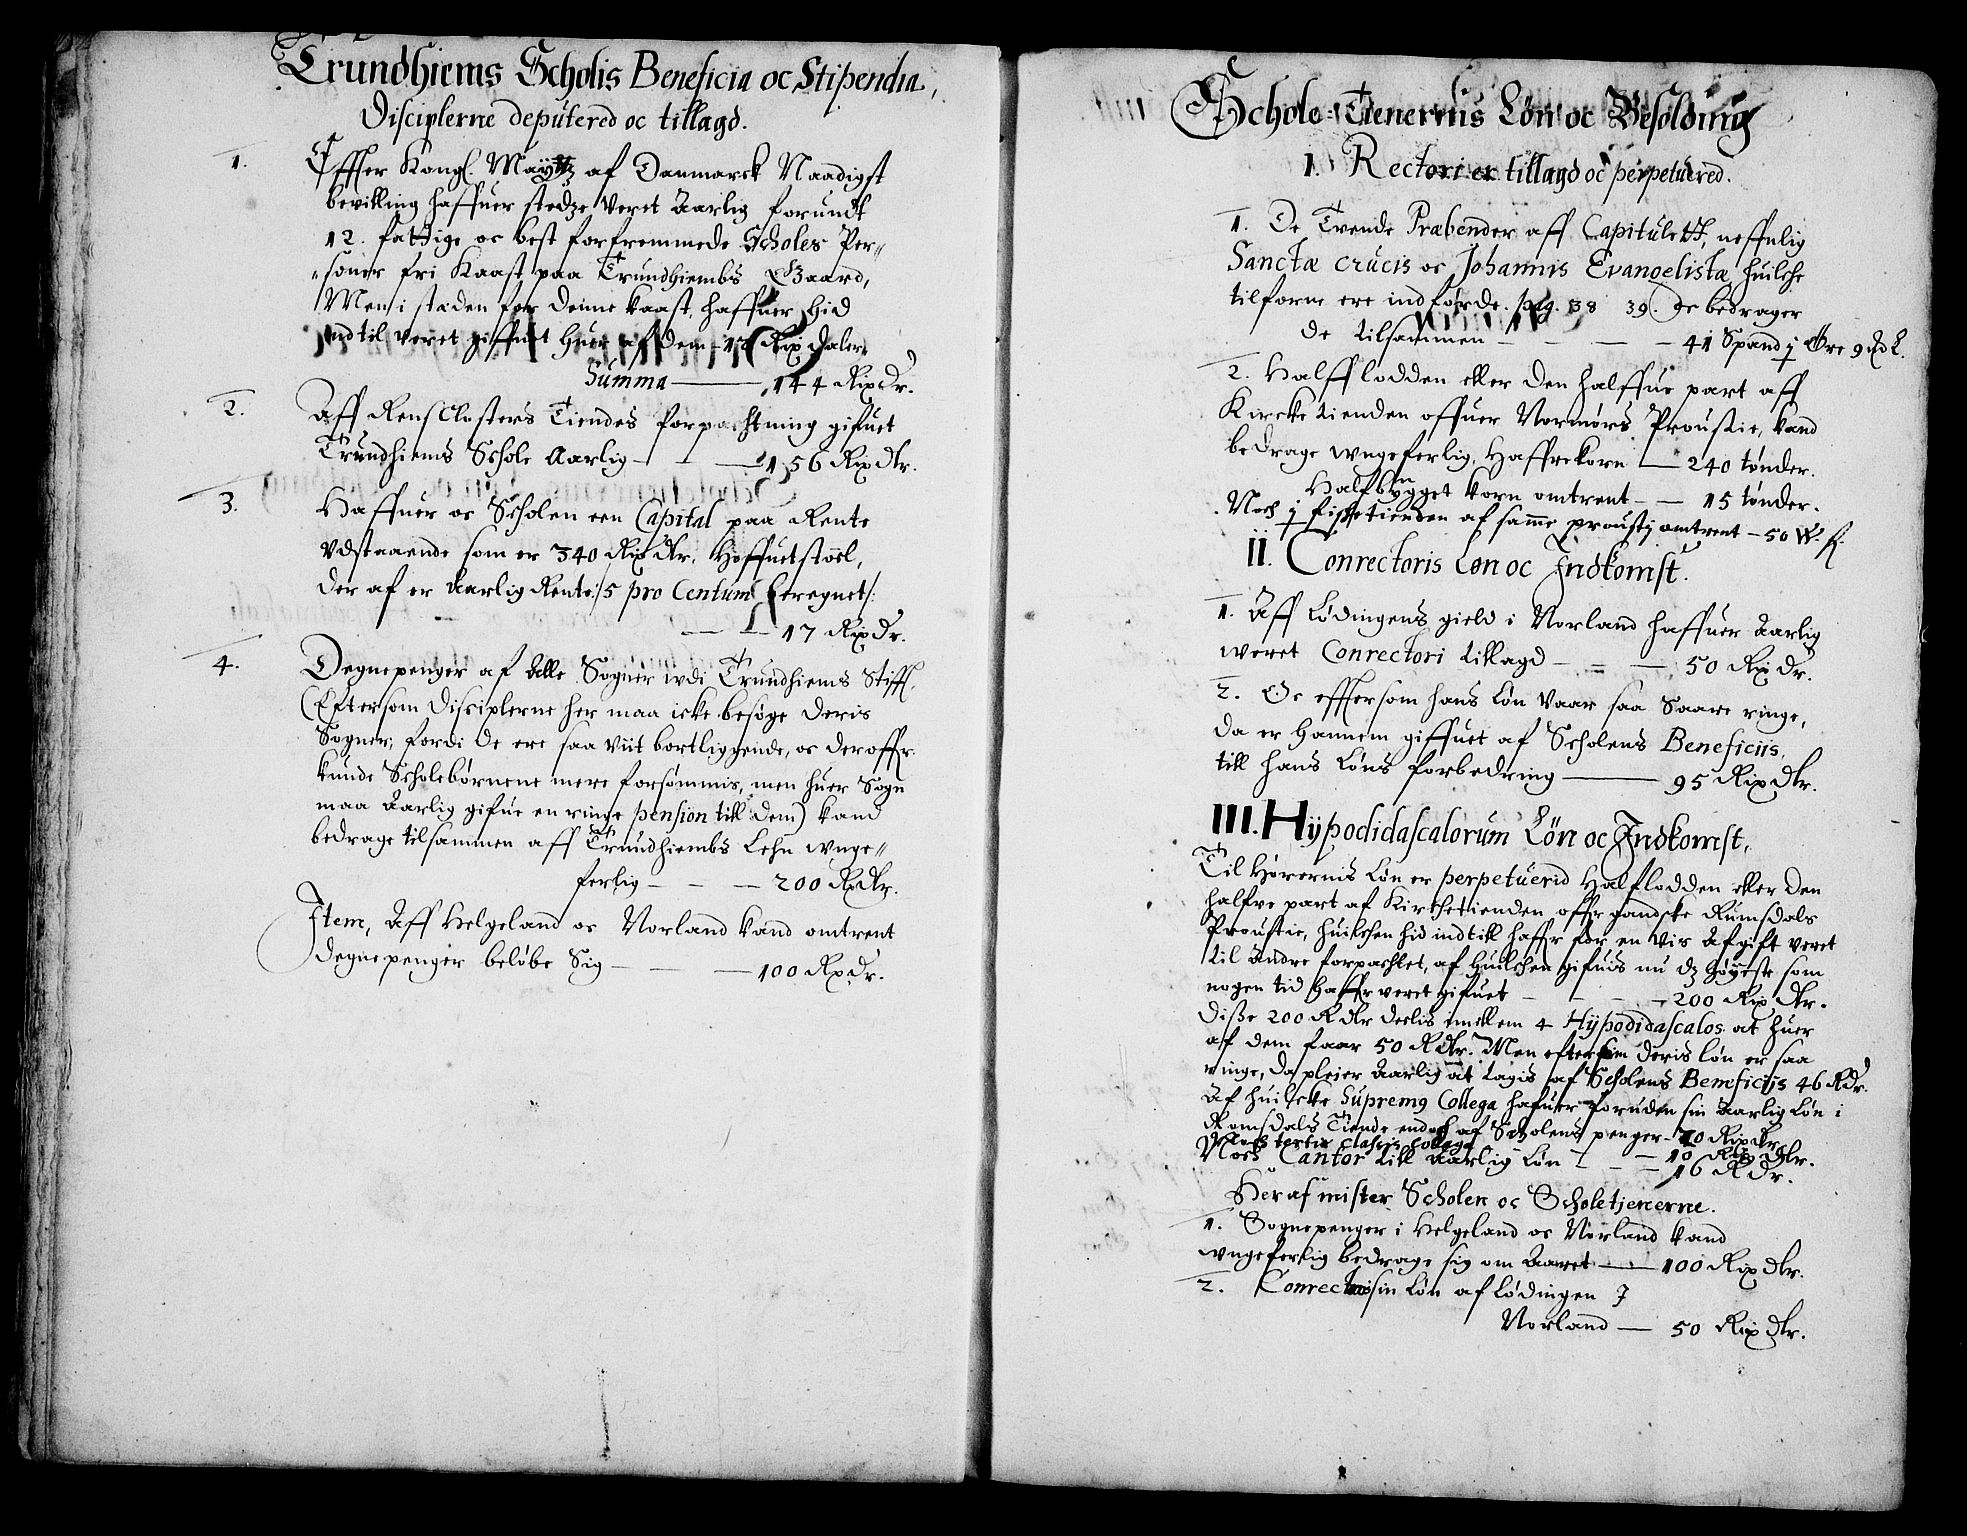 Trundhiems Scholis Beneficia oc Stipendia,
Disciplerne deputered oc tillagd.
1. Effter Kongl. Maÿttz af Danmarck Naadigst
bevilling haffuer stedze veret Aarlig forundt
12. fattige oc best forfremmede Scholes Per„
„soner fri Kaast paa Trundhiembs Gaard,
Men i stæden for denne kaast haffuer hid
indtil veret giffuet huer af dem - 12 Rix daler.
Summa — 144 Rix Dr.
2. Aff Rens Closters Tiendes forpachtning gifuet
Trundhiems Schole Aarlig — — 156 Rix dlr.
3. Haffuer oc Scholen een Capital paa Rente
Vdstaaende som er 340 Rix dlr. Hoffuetstoel,
der af er Aarlig Rente /: 5 pro Centum beregnet :/
— — 17 Rix Dr.
4. Degnepenger af Alle Sogner udi Trundhiems Stifft,
(Eftersom Disciplerne her maa icke besøge deris
Sogner, fordi de ere saa viit bortliggende, oc deroffr.
kunde Scholebørnene mere forsømmis, men huer Sogn
maa Aarlig gifue en ringe pension till dem) kand
bedrage tilsammen aff Trundhiembs Lehn wnge„
ferlig — — — 200 Rdlr.
Item, Aff Helgeland oc Norland kand omtrent
degnepenger beløbe Sig — — — 100 Rx Dr.
Schole-Tienernis Løn oc Besolding
I. Rectori er tillagd oc perpetuered.
1. De Tvende Præbender aff Capitulett, neffnlig
Sanctæ crucis oc Johannis Evangelistæ, huilche
tilforne ere indførde. pag. 38 39. De bedrager
de tilsammen — — — 41 Spand j Øre 9 M L.
2. Halfflodden eller den halffue part aff
Kircketienden offuer Normørs Proustie, kand
bedrage wngeferlig, Haffrekorn — 240 tønder.
Halfbygget korn omtrent — — 15 tønder.
Noch j fisketienden af samme prousti omtrent — 50 W. f.
II. Conrectoris Løn oc Indkomst.
1. Aff Lødingens gield i Norland haffuer Aarlig
weret Conrectori tillagd — — — 50 Rix Dr.
2. Oc effter som hans Løn vaar saa Saare ringe,
da er hannem giffuet af Scholens Beneficiis,
till hans Løns forbedring — 95 Rix dlr.
III. Hÿpodidascalorum Løn oc Indkomst,
Til Hørernis Løn er perpetuerid Halflodden eller den
halfve part af Kirchetienden offr gandske Rumsdals
Proustie, huilchen hid indtill haffr for en vis Afgift veret
til Andre forpachtet, af huilchen gifuis nu dz høÿeste som
nogen tid haffr veret gifuet — — — 200 Rix dlr.
Disse 200 R dlr deelis imellem 4 Hÿpodidascalos at huer
af dem faar 50 R dlr. Men eftersom deris løn er saa
ringe, da pleier Aarlig at tagis af Scholens Beneficiis 46 RDr.
Af huilcke Supremg Collega hafuer foruden sin Aarlig Løn i
Romsdals Tiende endoch af Scholens penger - 20 Rix Dr.
Noch tertiæ classis collega — 10 Rix dlr.
Noch Cantor till Aarlig Løn — — 16 R Dr.
Heraf mister Scholen oc Scholetjenerne.
1. Sognepenger i Helgeland oc Norland kand
wngeferlig bedrage sig om Aaret — 100 Rix dlr.
2. Conrectoris sin Løn af Lødingen J
Norland — 50 Rix dlr.